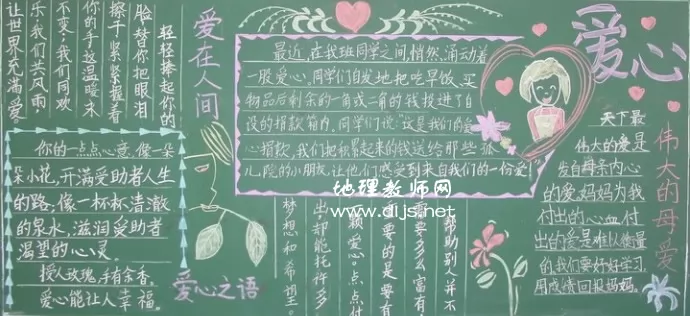 轻轻捧起你的
脸替你把眼泪
擦干紧紧握着
你的手这温暖
不变;我们同欢
乐,我们共风雨,
让世界充满爱
爱在人间
你的一点点心意,像一朵
朵小花,开满受助者人生
的路;像一杯杯清澈
的泉水,滋润受助者
渴望的心灵。
授人玫瑰,手有余香。
爱心能让人幸福。
爱心之语
最近,在我班同学之间悄然涌动着
一股爱心,同学们自发地把吃早饭、买
物品后剩余的一角或二角的钱投进了自
设的捐款箱内。同学们说"这是我们的爱
心捐款,我们把积累起来的钱送给那些孤
儿院的小朋友,让他们感受到来自我们的一份爱!"
地理教师网
www.dljs.net
帮助别人并不
需要多么富有,
需要的是要有
颗爱心点点付
出却能托许多
梦想和希望。
爱心
伟大的母爱
天下最
伟大的爱是
发自母亲内心
的爱,妈妈为我
付出的心血,付
出的爱是难以衡量
的我们要好好学习
用成绩回报妈妈。